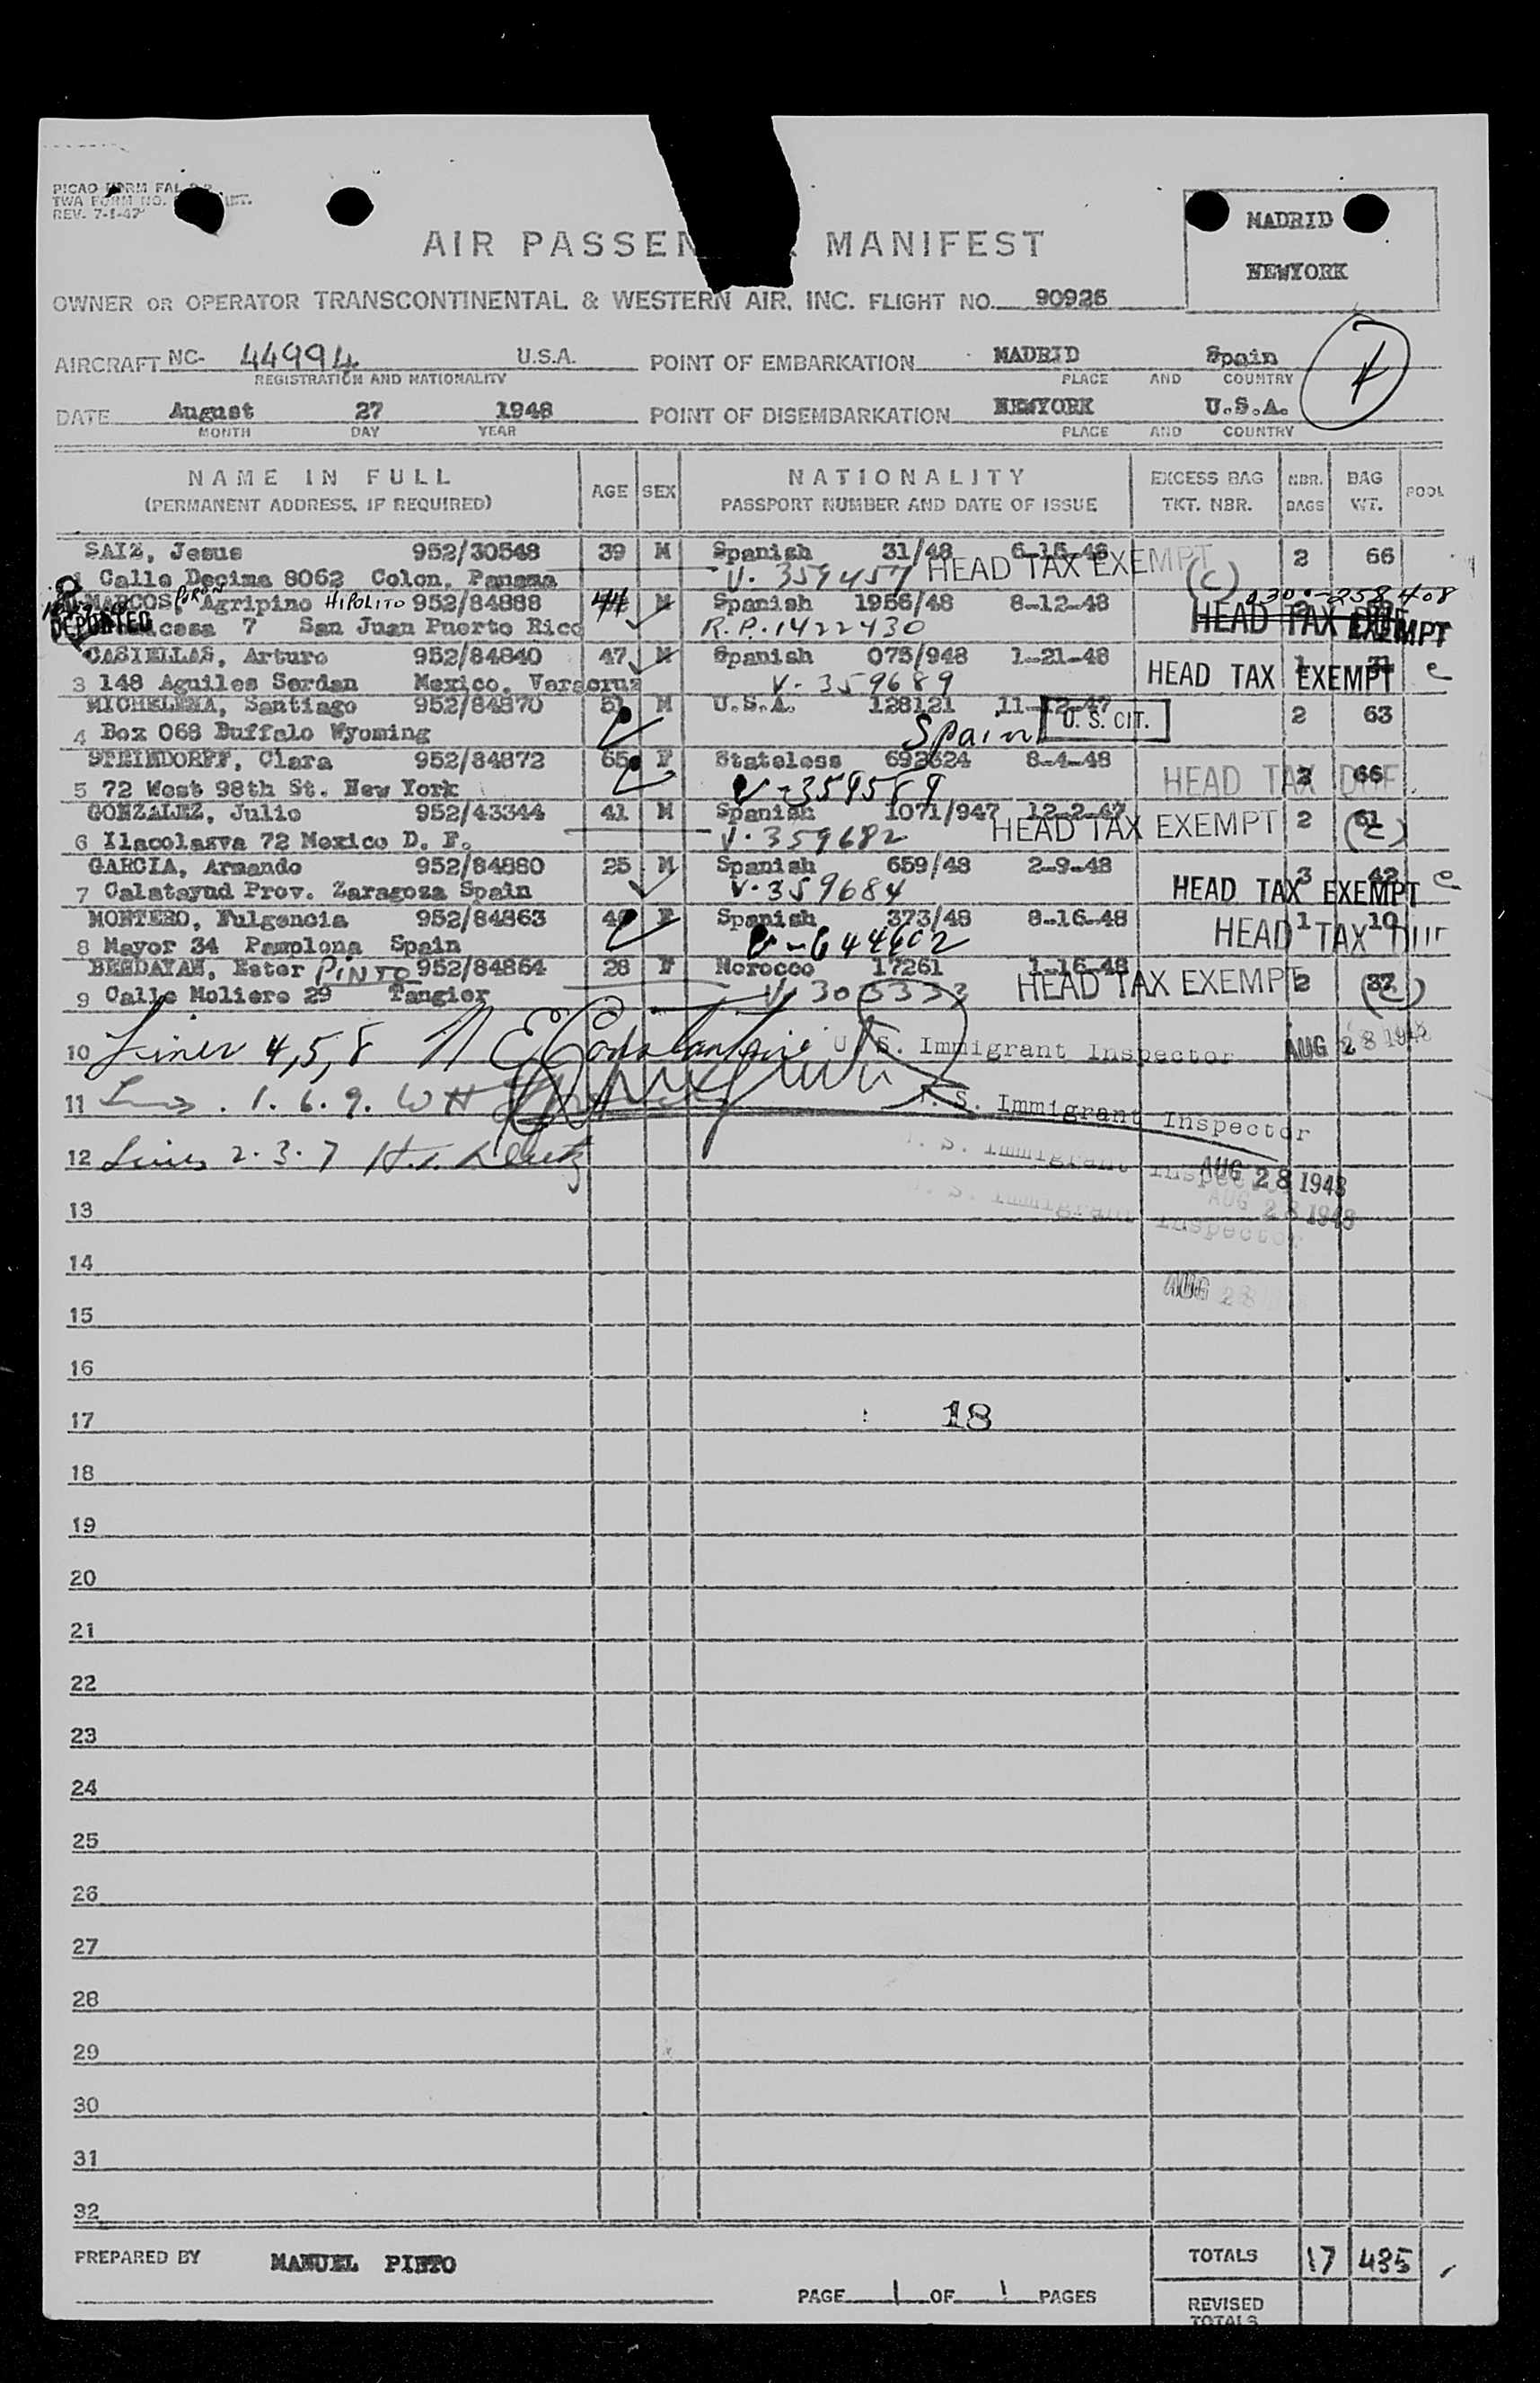 PICAO FORM FAL
TWA FORM NO. INT.
REV. 7-1-47
MADRID
NEWYORK
AIR PASSEN MANIFEST
OWNER OR OPERATOR TRANSCONTINENTAL & WESTERN AIR, INC. FLIGHT NO. 90926
AIRCRAFT NC- 44994 U.S.A. POINT OF EMBARKATION MADRID Spain
REGISTRATION AND NATIONALITY PLACE AND COUNTRY
DATE August 27 1948 POINT OF DISEMBARKATION NEWYORK U.S.A.
MONTH DAY YEAR PLACE AND COUNTRY
NAME IN FULL AGE SEX NATIONALITY EXCESS BAG NBR. BAG POOL
(PERMANENT ADDRESS, IF REQUIRED) PASSPORT NUMBER AND DATE OF ISSUE TKT. NBR. BAGS WT.
SAIZ, Jesus 952/30548 39 M Spanish 31/48 6-15-48 2 66
1 Calle Decima 8062 Colon, Panama V. 359457 HEAD TAX EXEMPT (C)
MARCOS, Agripino HIPOLITO 952/84888 44 M Spanish 1956/48 8-12-48 0300-258408
DEPORTED San Juan Puerto Rico R.P. 1422430 HEAD TAX EXEMPT
CASIELLAS, Arturo 952/84840 47 M Spanish 075/948 1-21-48
3 148 Aguiles Serdan Mexico, Veracruz V-359689 HEAD TAX EXEMPT c
MICHELENA, Santiago 952/84870 51 M U.S.A. 128121 11-12-47 2 63
4 Box 068 Buffalo Wyoming Spain U. S. CIT.
STEINDORFF, Clara 952/84872 65 F Stateless 692624 8-4-48 2 66
5 72 West 98th St. New York V-359589 HEAD TAX
GONZALEZ, Julio 952/43344 41 M Spanish 1071/947 12-2-47 2 61
6 Ilacolasva 72 Mexico D. F. V-359682 HEAD TAX EXEMPT (c)
GARCIA, Armando 952/84880 25 M Spanish 659/48 2-9-48 3 42 c
7 Calatayud Prov. Zaragoza Spain V-359684 HEAD TAX EXEMPT
MONTERO, Fulgencia 952/84863 F Spanish 373/48 8-16-48 1 10
8 Mayor 34 Pamplona Spain V-644602 HEAD TAX
BENDAYAN, Ester PINTO 952/84864 28 F Morocco 17261 1-16-48 2 37
9 Calle Moliere 29 Tangier V. 305333 HEAD TAX EXEMPT (C)
10 Lines 4,5,8 N E Constantine U. S. Immigrant Inspector AUG 28 1948
11 Lines. 1. 6. 9. U. S. Immigrant Inspector
12 Lines 2. 3. 7 U. S. Immigrant Inspector AUG 28 1948
13 U. S. Immigrant Inspector AUG 28 1948
14 AUG 28
15
16
17 18
18
19
20
21
22
23
24
25
26
27
28
29
30
31
32
PREPARED BY MANUEL PINTO TOTALS 17 435
PAGE 1 OF 1 PAGES REVISED
TOTALS